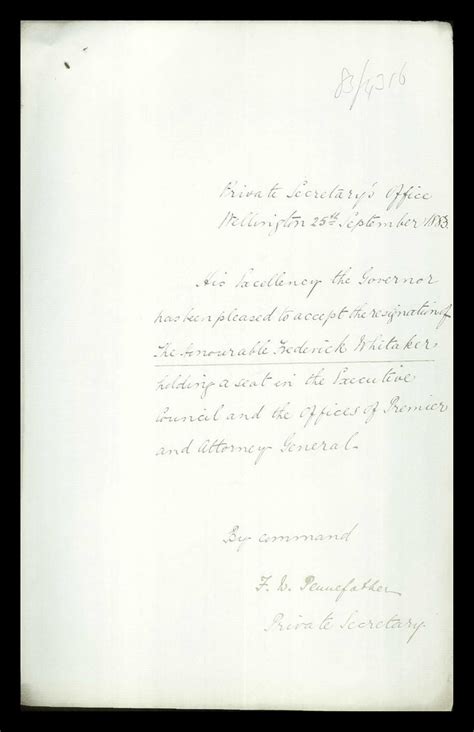 83/4316
Private Secretary's Office
Wellington 25th September 1883.
His Excellency the Governor
has been pleased to accept the resignation of
The Honourable Frederick Whitaker
holding a seat in the Executive
Council and the Offices of Premier
and Attorney General.
By command
F. W. Pennefather
Private Secretary